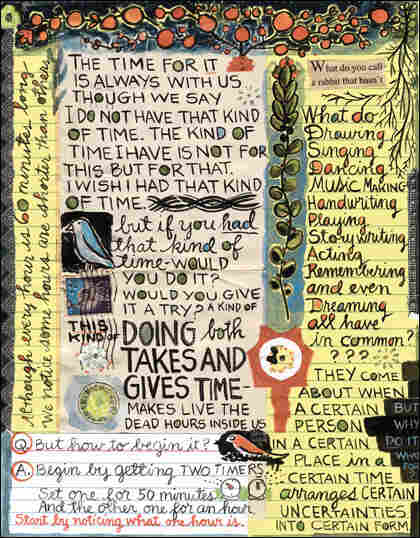 Although every hour is 60 minutes long
We notice some hours are shorter than others
THE TIME FOR IT
IS ALWAYS WITH US
THOUGH WE SAY
I DO NOT HAVE THAT KIND
OF TIME. THE KIND OF
TIME I HAVE IS NOT FOR
THIS BUT FOR THAT.
I WISH I HAD THAT KIND
OF TIME.
but if you had
that kind of
time-WOULD
YOU DO IT?
WOULD YOU GIVE
IT A TRY? A KIND OF
THIS
KIND OF
DOING both
TAKES AND
GIVES TIME-
MAKES LIVE THE
DEAD HOURS INSIDE US
What do you call
a rabbit that hasn't
What do
Drawing
Singing
Dancing
MUSIC MAKING
Handwriting
Playing
Story writing
Acting
Remembering
and even
Dreaming
all have
in common?
???
THEY COME
ABOUT WHEN
A CERTAIN
PERSON
IN A CERTAIN
PLACE in a
CERTAIN TIME
arranges CERTAIN
UNCERTAINTIES
INTO CERTAIN FORM.
BUT
WHY
DO I
WHO
Q. But how to begin it?
A. Begin by getting TWO TIMERS
Set one for 50 minutes
And the other one for an hour
Start by noticing what one hour is.